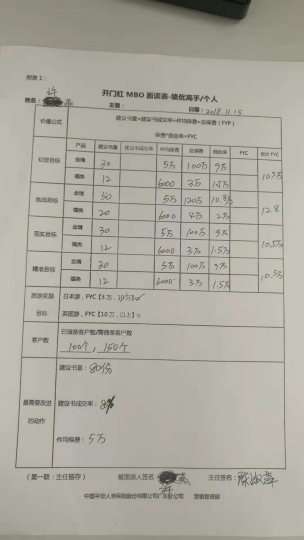 附表 1：
开门红 MBO 面谈表-绩优高手/个人
姓名： 燕 主管： 日期：2018.11.15
价值公式 建议书量*建议书成交率*件均保费=总保费（FYP）
保费*佣金率=FYC
产品 建议书量 建议书成交率 件均保费 总保费 佣金率 FYC 合计 FYC
金瑞 30 5万 100万 9万
福类 12 6000 3万 1.5万 10.5万
挑战目标 金瑞 50 5万 120万 10.8万
福类 20 6000 4万 2万 12.8
金瑞 30 5万 100万 9万
福类 12 6000 3万 1.5万 10.5万
精准目标 金瑞 30 5万 100万 9万
福类 12 6000 3万 1.5万 10.5万
旅游奖励 日本游，FYC【3万，10万】
目标 英国游，FYC【10万，以上】
客户数 已储备客户数/需储备客户数
100个，150个
建议书量：80份
最需要改进 建议书成交率：
的动作 件均保费：5万
（第一联：主任留存） 被面谈人签名： 燕 主任签名：
中国平安人寿保险股份有限公司广东分公司